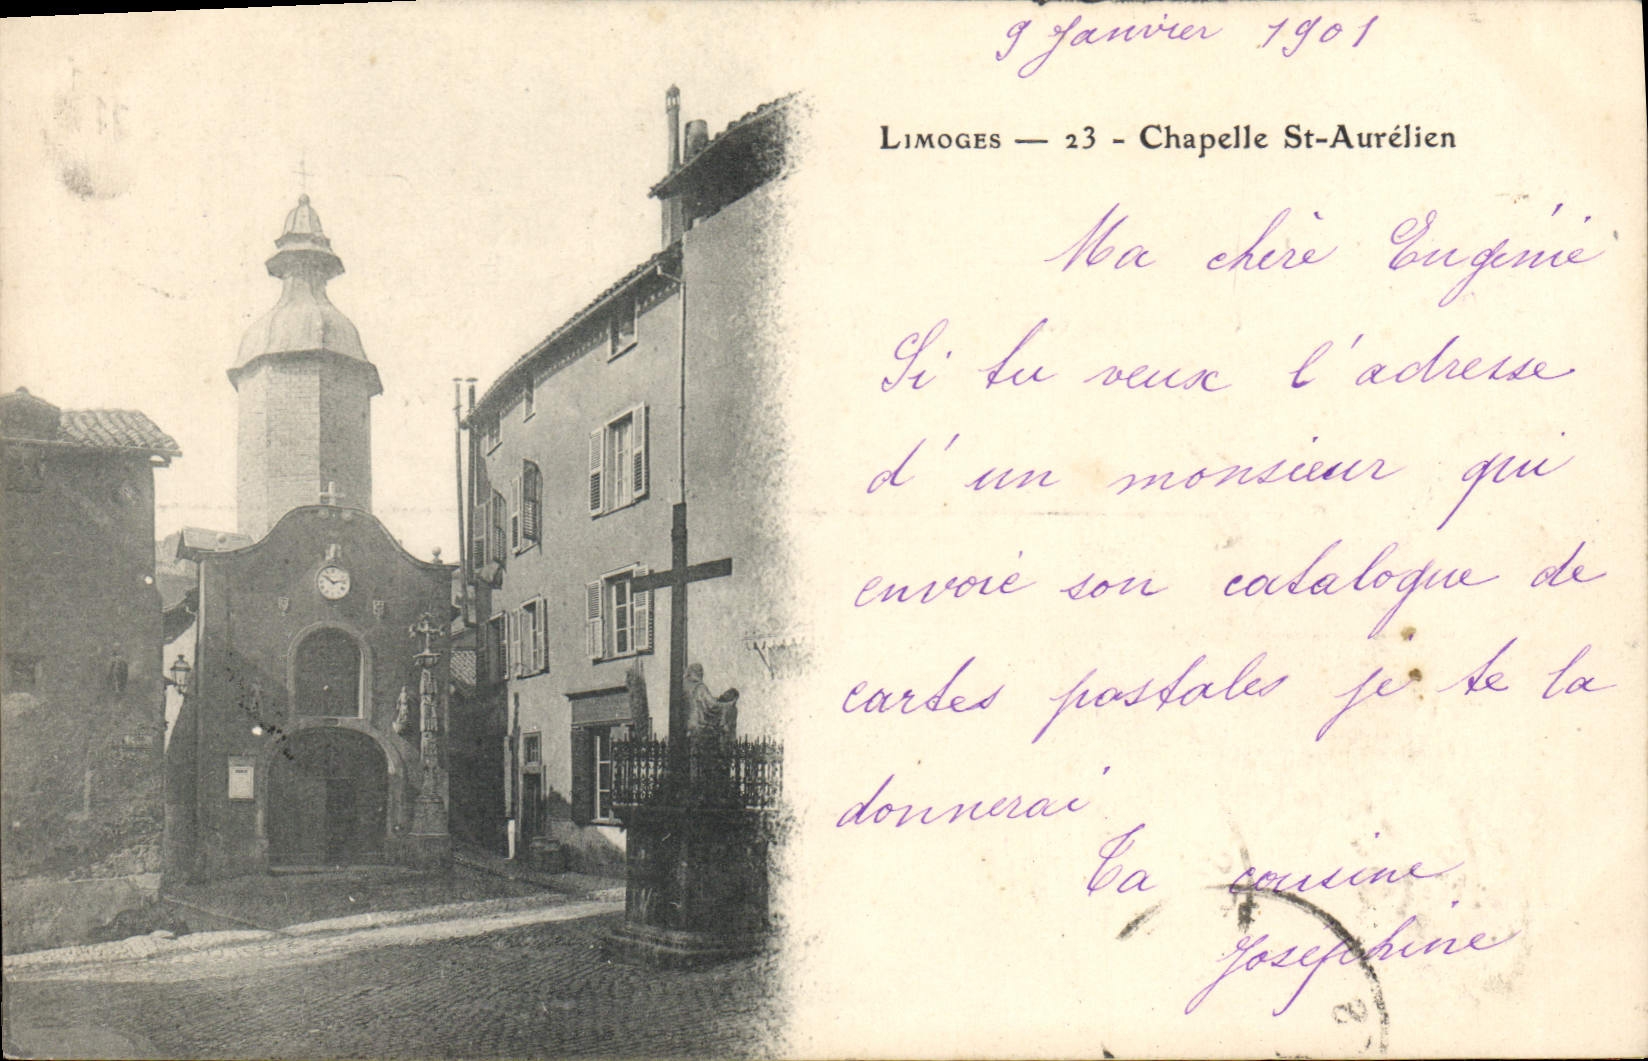 9 Janvier 1901
LIMOGES — 23 - Chapelle St-Aurélien
Ma chère Eugénie
Si tu veux l'adresse
d'un monsieur qui
envoie son catalogue de
cartes postales je te la
donnerai
Ta cousine
Josephine